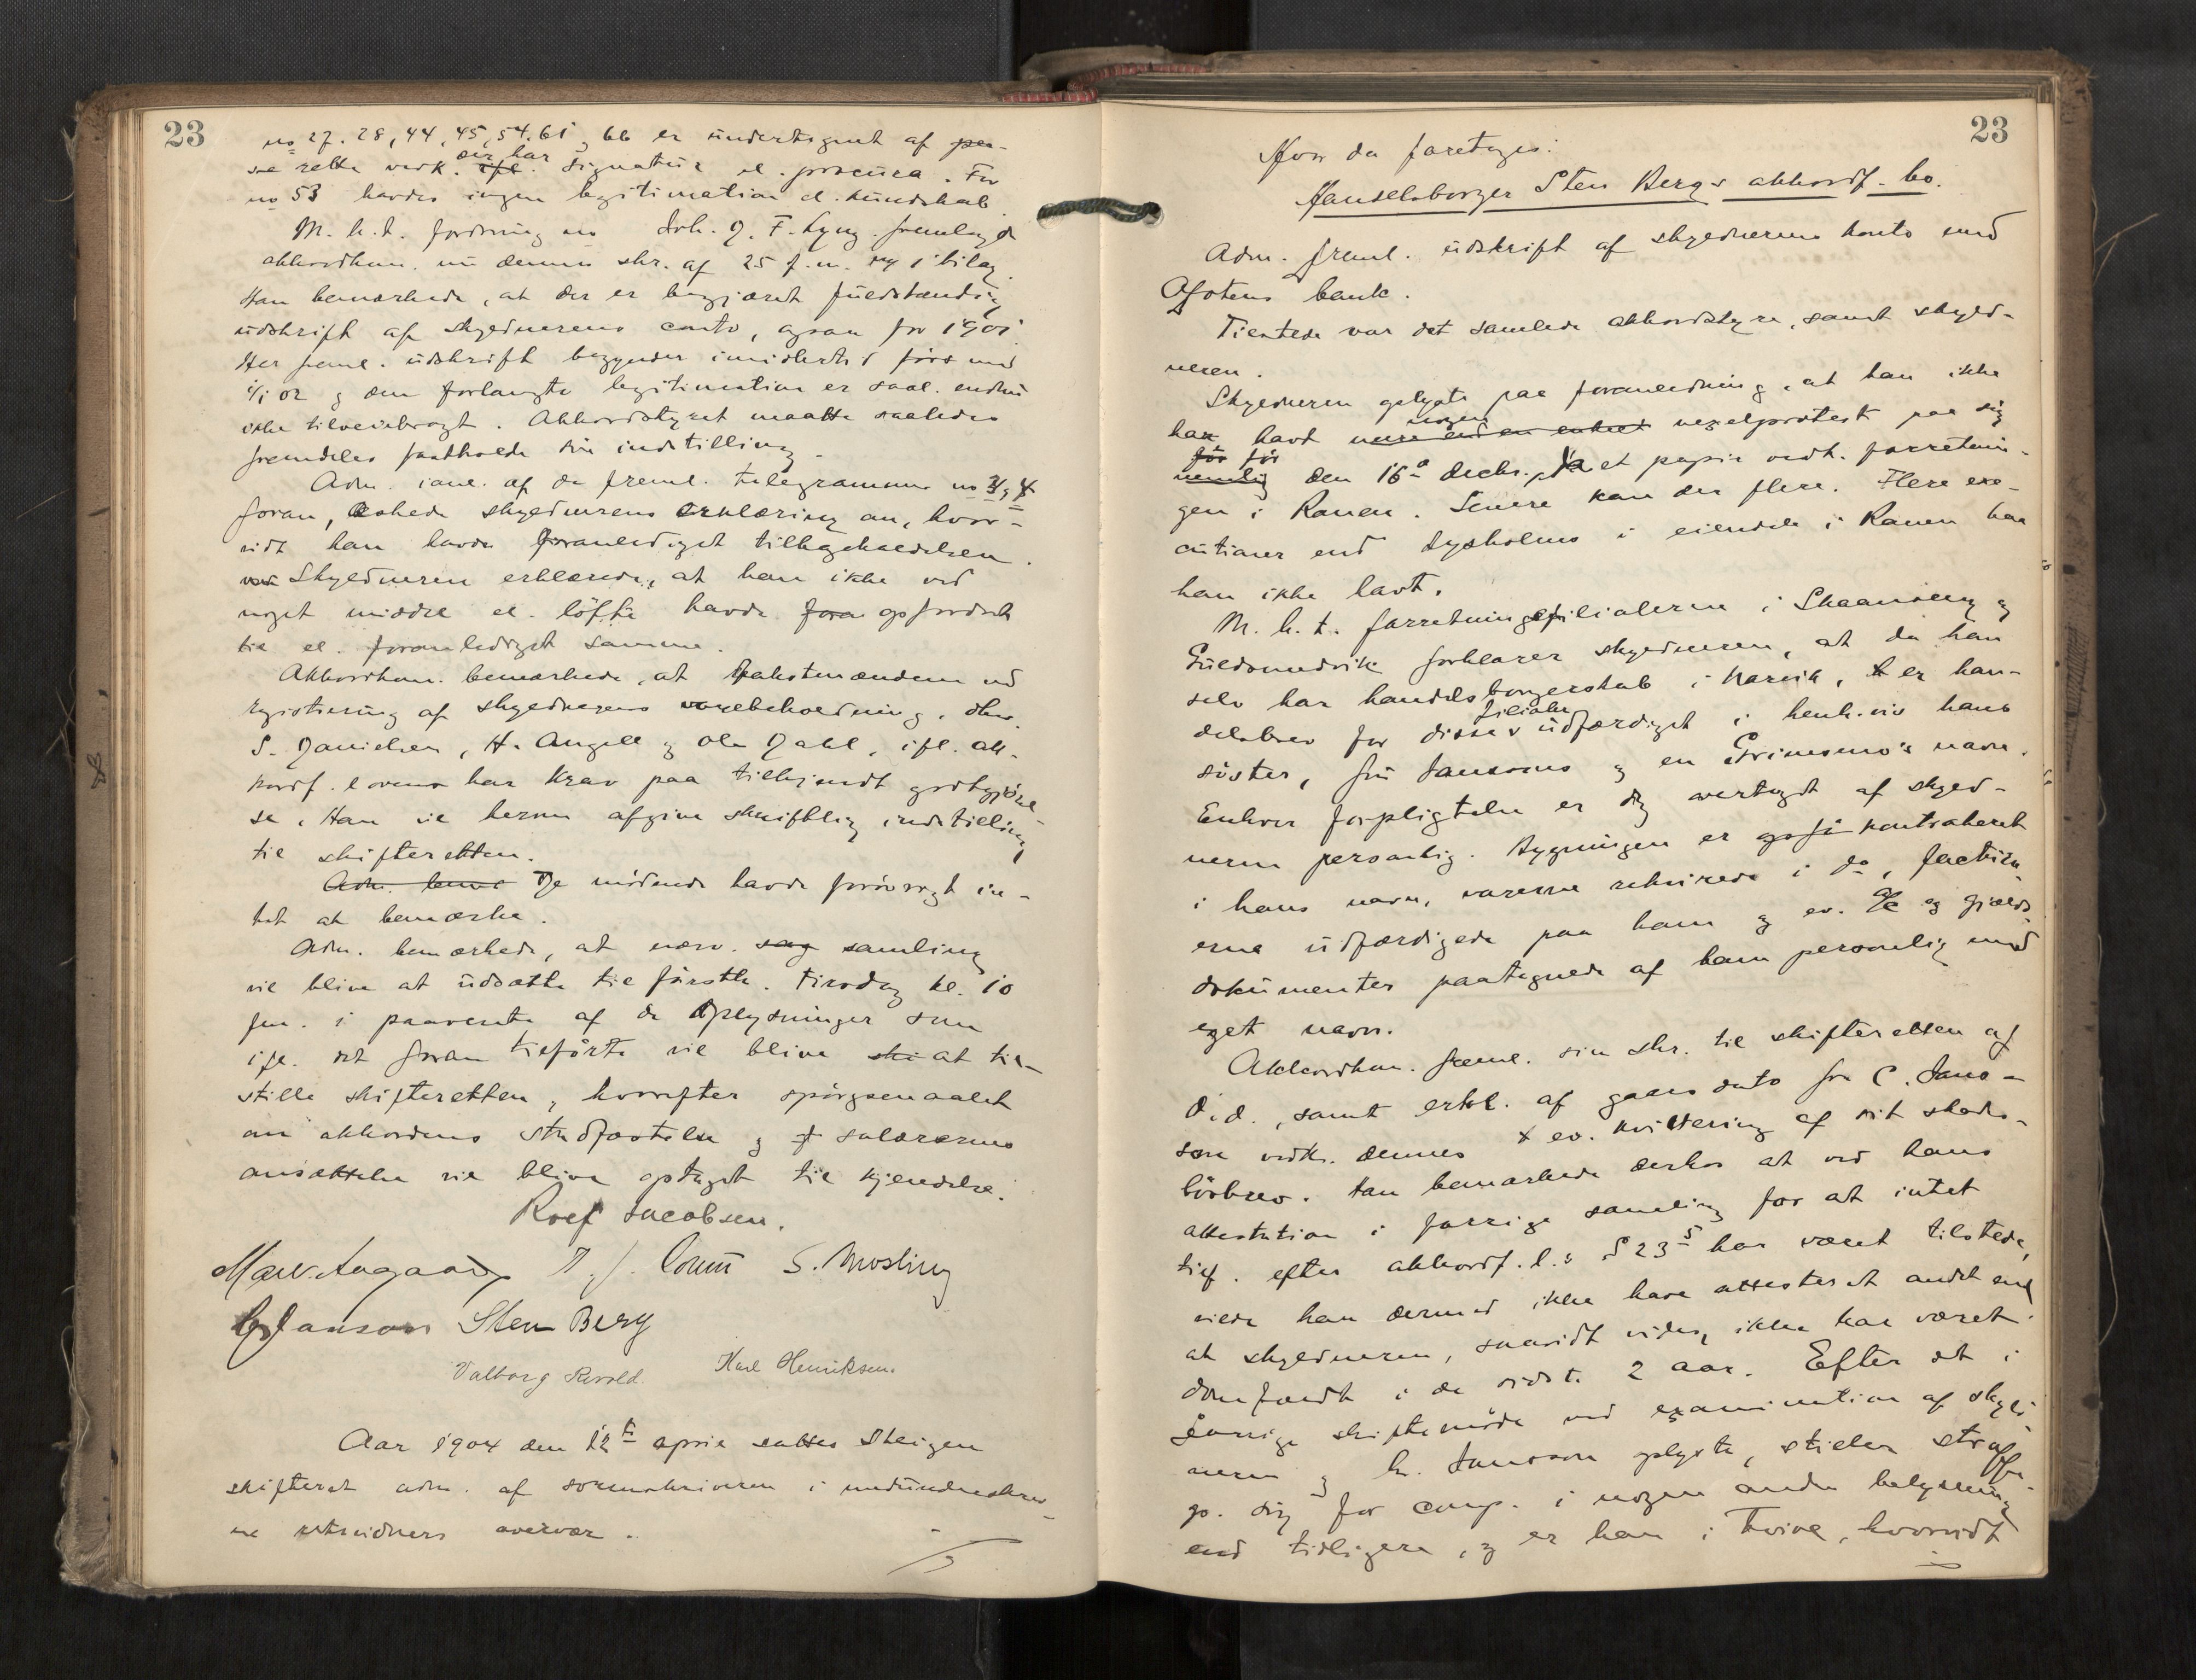 23
no 27. 28, 44, 45, 54. 61, 66 er undertegnet af per-
se rette vedk. der har signatur el. procura. For
no 53 havdes ingen legitimation el. kundskab.
M. h. t. fordring no Joh. J. F. Lyng. fremlagde
akkordkom. nu dennes skr. af 25 f. m. og 1 bilag.
Han bemærkede, at der er begjæret fuldstændig
udskrift af skyldnerens conto, ogsaa for 1901.
Her freml. udskrift begynder imidlertid først med
1/1 02 og den forlangte legitimation er saal. endnu
ikke tilveiebragt. Akkordstyret maatte saaledes
fremdeles fastholde sin indstilling.
Adm. ianl. af de freml. telegrammer no 3 & 4
foran, æskede skyldnerens erklæring om, hvor-
vidt han havde foranlediget tilbageholdelsen.
Skyldneren erklærede, at han ikke ved
noget middel el. löfte havde fora opfordret
til el. foranlediget samme.
Akkordkom. bemærkede, at takstmændene ved
registrering af skyldnerens varebeholdning, dhrr.
S. Danielsen, H. Angell & Ole Dahl, ifl. ak-
kordf. lovens har krav paa tilkjendt godtgjörel-
se. Han vil herom afgive skriftlig indstilling
til skifteretten.
Adm. bem De mödende havde forövrigt in-
tet at bemærke.
Adm. bemærkede, at nærv. sag samling
vil blive at udsætte til förstk. tirsdag kl. 10
fm. i paavente af de oplysninger som
ifl. det foran tilförte vil blive ski at til-
stille skifteretten, hvorefter spörgsmaalet
om akkordens stadfæstelse og f salærernes
ansættelse vil blive optaget til kjendelse.
Rolf Jacobsen.
Marv. Aagaard S. Mosling
C Jansson Sten Berg
Valborg Karl Henriksen.
Aar 1904 den 12te april sattes Steigen
skifteret adm. af sorenskriveren i undundreskrev-
ne retsvidners overvær.
23
Hvor da foretoges:
Handelsborger Sten Bergs akkordf. bo.
Adm. freml. udskrift af skyldnerens konto med
Ofotens bank.
Tilstede var det samlede akkordstyre, samt skyld-
neren.
Skyldneren oplyste paa foranledning, at han ikke
har havt mere end en enkelt nogen vexelprotest paa sig
för för
nemlig den 16de decbr. paa et papir vedk. forretnin-
gen i Ranen. Senere kom der flere. Flere exe-
cutioner end Dysholms i eiendele i Ranen har
han ikke havt.
M. h. t. forretningsfilialerne i Skaanland og
forklarer skyldneren, at da han
selv har handelsborgerskab i Narvik, er han-
delsbrev for disse filialer udfærdiget i henh.vis hans
söster, fru Janssons og en Grimsmo's navn.
Enhver forpligtelse er dog overtaget af skyld-
neren personlig. Bygningen er ogsaa kontraheret
i hans navn, varerne rekvirede i do, factur-
erne udfærdigede paa ham og ev. og gjælds
dokumenter paategnede af ham personlig med
eget navn.
Akkordkom. freml. sin skr. til skifteretten af
d.d., samt erkl. af gaars dato fra C. Jans-
son vedk. dennes ev. kvittering af sit skades-
lösbrev. Han bemærkede derhos at ved hans
attestation i forrige samling for at intet
tilf. efter akkordf. l.s § 23 5 har været tilstede,
vilde han dermed ikke have attesteret andet end
at skyldneren, saavidt vides, ikke har været
domfældt i de sidste 2 aar. Efter det i
forrige skiftemöde ved examination af skyld-
neren og hr. Jansson oplyste, stiller
sig for comp. i nogen anden belysning
end tidligere, og er han i tvivl, hvorvidt